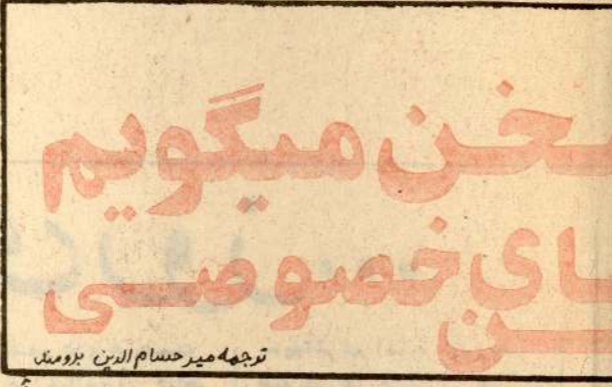 خن میگویم
ای خصوصی
ن
ترجمه میر حسام الدین برومند